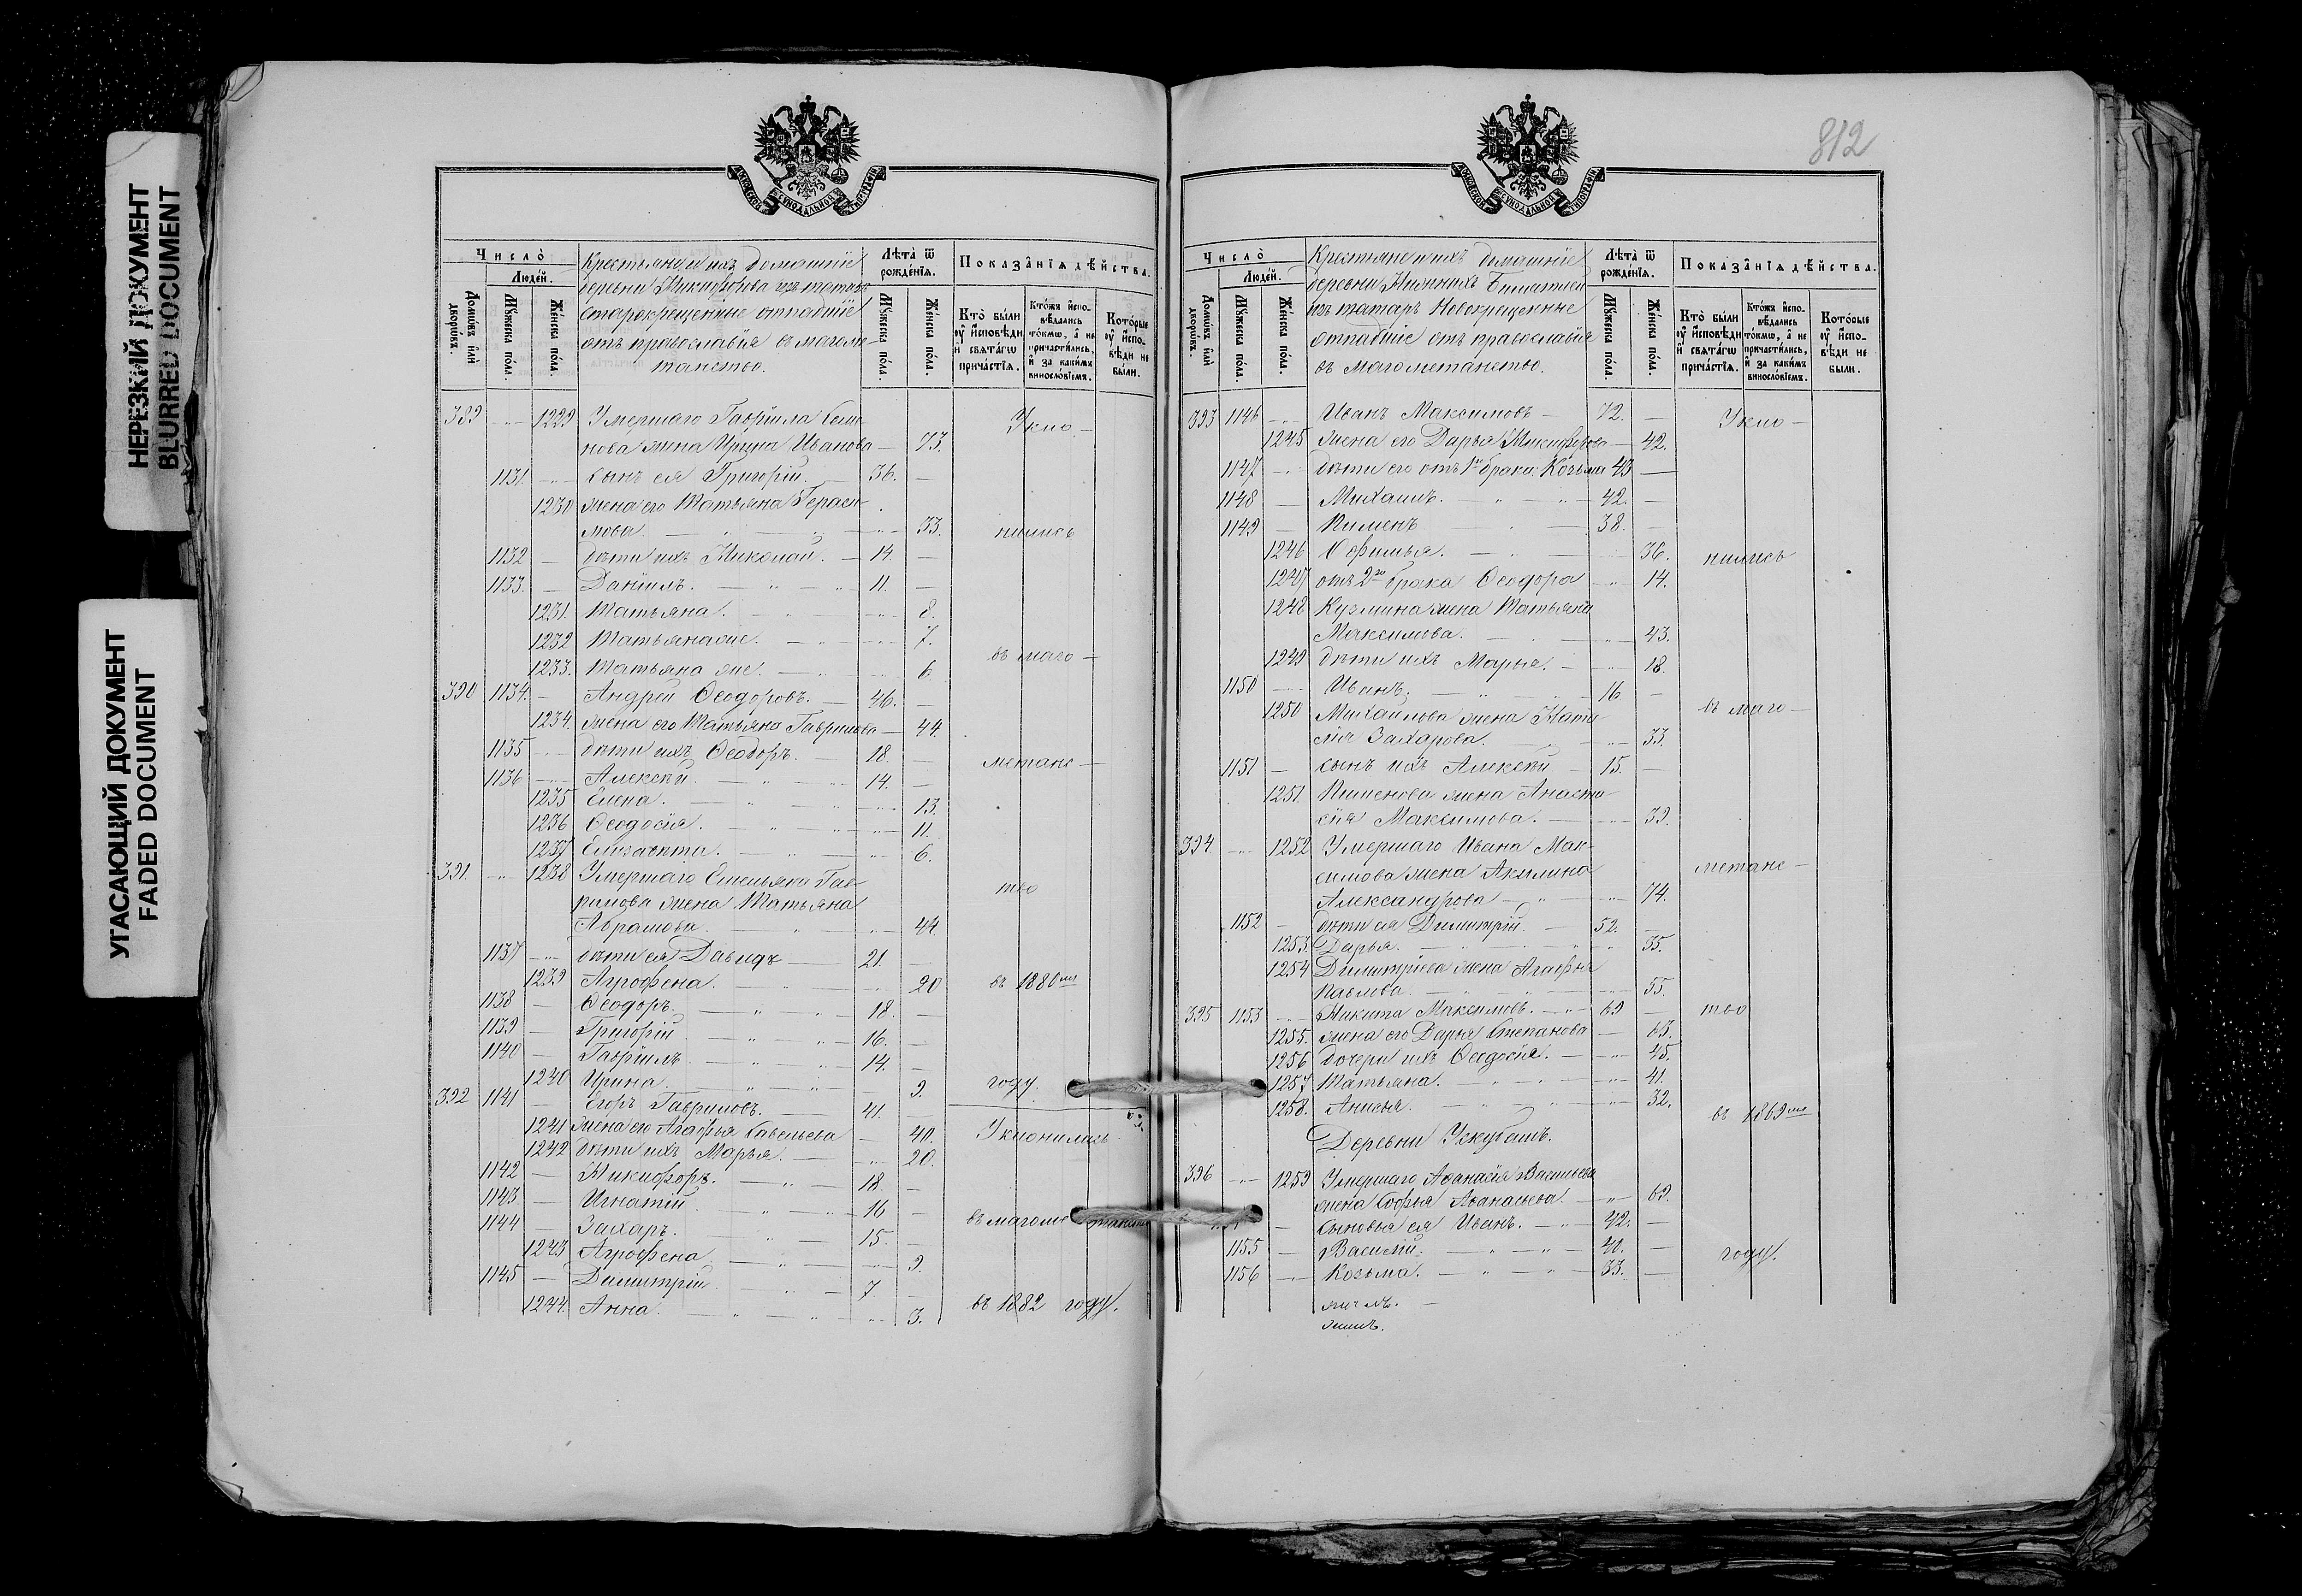 НЕРЕЗКИЙ ДОКУМЕНТ
BLURRED DOCUMENT
УГАСАЮЩИЙ ДОКУМЕНТ
FADED DOCUMENT
МОСКОВСКОЙ СѴНОДАЛЬНОЙ ТИПОГРАФІИ
Число̀
Людей.
Домѡ́въ и҆лѝ дворѡ́въ.
Мꙋ́жеска по́ла.
Же́нска по́ла.
Крестьяне и ихъ домашніе
деревни Никифорова изъ татаръ
старокрещенные отпавшіе
отъ православія въ магоме-
танство.
Лѣ́та ѿ рожде́нїѧ.
Мꙋ́жеска по́ла.
Же́нска по́ла.
Показа̑нїѧ дѣ́йства.
Кто̀ бы́ли ᲂу҆ и҆сповѣ́ди и҆ свѧта́гѡ прича́стїѧ.
Кто́жъ и҆спо-вѣ́дались то́кмѡ, а҆ не причасти́лись, и҆ за каки́мъ винослѡ́вїемъ.
Кото́рые ᲂу҆ и҆спо-вѣ́ди не бы́ли.
389 -„- 1229 Умершаго Гавріила Семе-
нова жена Ирина Иванова — 73. Укло-
1131 -„- сынъ ея Григорій. — 36. —
1230 жена его Татьяна Гераси-
мова — „ — -„- 33. нились
1132 — дѣти ихъ Николай. — 14. —
1133. — Даніилъ. — „ — „ 11. —
1231. Татьяна. — „ — -„- 8.
1232 Татьяна же. — -„- 7.
1233. Татьяна же. — „ -„- 6 въ маго-
390 1134. — Андрей Ѳеодоровъ. — 46. —
1234. жена его Татьяна Гаврилова — 44.
1135 -„- дѣти ихъ Ѳеодоръ. — 18. — метанс-
1136 -„- Алексѣй. — „ -„- 14. —
1235 Елена. — „ — -„- 13.
1236 Ѳеодосія. — „ — -„- 11.
1237 Елизавета. — „ -„- 6.
391. -„- 1238 Умершаго Емельяна Гав-
рилова жена Татьяна тво
Абрамова. — „ -„- 44
1137 -„- дѣти ея Давидъ — 21. —
1239 Агрофена. — „ -„- 20 въ 1880мъ
1138 — Ѳеодоръ. — „ — „ 18. —
1139 — Григорій — „ — „ 16. —
1140 — Гавріилъ. — „ — „ 14. —
1240 Ирина. — „ — -„- 9. году.
392 1141 — Егоръ Гавриловъ. — 41. —
1241 жена его Агафья Савельева — 40. Уклонились
1242 дѣти ихъ Марья. — -„- 20.
1142 — Никифоръ. — „ — 18. —
1143 — Игнатій — „ — „ 16 —
1144 — Захаръ. — „ — 15. — въ магоме танст
1243 Агрофена — „ — -„- 9.
1145 — Димитрій — „ — 7 —
1244. Анна. — „ — „ -„- 3. въ 1882 году.
812
МОСКОВСКОЙ СѴНОДАЛЬНОЙ ТИПОГРАФІИ
Число̀
Людей.
Домѡ́въ и҆лѝ дворѡ́въ.
Мꙋ́жеска по́ла.
Же́нска по́ла.
Крестьяне и ихъ домашніе
деревни Нижнихъ
изъ татаръ Новокрещенные
отпавшіе отъ православія
въ магометанство.
Лѣ́та ѿ рожде́нїѧ.
Мꙋ́жеска по́ла.
Же́нска по́ла.
Показа̑нїѧ дѣ́йства.
Кто̀ бы́ли ᲂу҆ и҆сповѣ́ди и҆ свѧта́гѡ прича́стїѧ.
Кто́жъ и҆спо-вѣ́дались то́кмѡ, а҆ не причасти́лись, и҆ за каки́мъ винослѡ́вїемъ.
Кото́рые ᲂу҆ и҆спо-вѣ́ди не бы́ли.
393 1146 -„- Иванъ Максимовъ — 72. — Укло-
1245 жена его Дарья Никифорова — 42.
1147 -„- дѣти его отъ 1го брака: Козьма 43 —
1148 — Михаилъ. — „ — „ 42. —
1149 — Пименъ — „ — 38. —
1246 Ѳофимья. — „ — 36. нились
1247 отъ 2го брака Ѳеодора -„- 14.
1248 Кузмина жена Татьяна
Максимова. — -„- 43.
1249 дѣти ихъ Марья. — -„- 18.
1150 -„- Иванъ. — „ — „ 16 —
1250 Михайлова жена Ната- въ маго-
лія Захарова. — „ -„- 33.
1151 — сынъ ихъ Алексѣй — 15. —
1251. Пименова жена Анаста-
сія Максимова. — -„- 39.
394 -„- 1252 Умершаго Ивана Мак-
симова жена Акилина метанс-
Александрова — „ -„- 74.
1152 — дѣти ея Димитрій. — 52. —
1253. Дарья. — „ — „ 35.
1254 Димитріева жена Агафья
Павлова. — „ -„- 55.
395 1153 -„- Никита Максимовъ. -„- 69 — тво
1255. жена его Дарья Степанова — 63.
1256 дочери ихъ Ѳеодосія. — -„- 45.
1257 Татьяна. — „ — -„- 41.
1258. Анисья. — „ -„- 32. въ 1869мъ
Деревни Ускубашъ.
396 -„- 1259 Умершаго Аѳанасія Васильева
жена Софья Аѳанасьева. -„- 69.
— сыновья ея Иванъ. -„- 42. —
1155 — Василій. — „ — „ 40. — году.
1156 -„- Козьма. — „ — „ 33. —